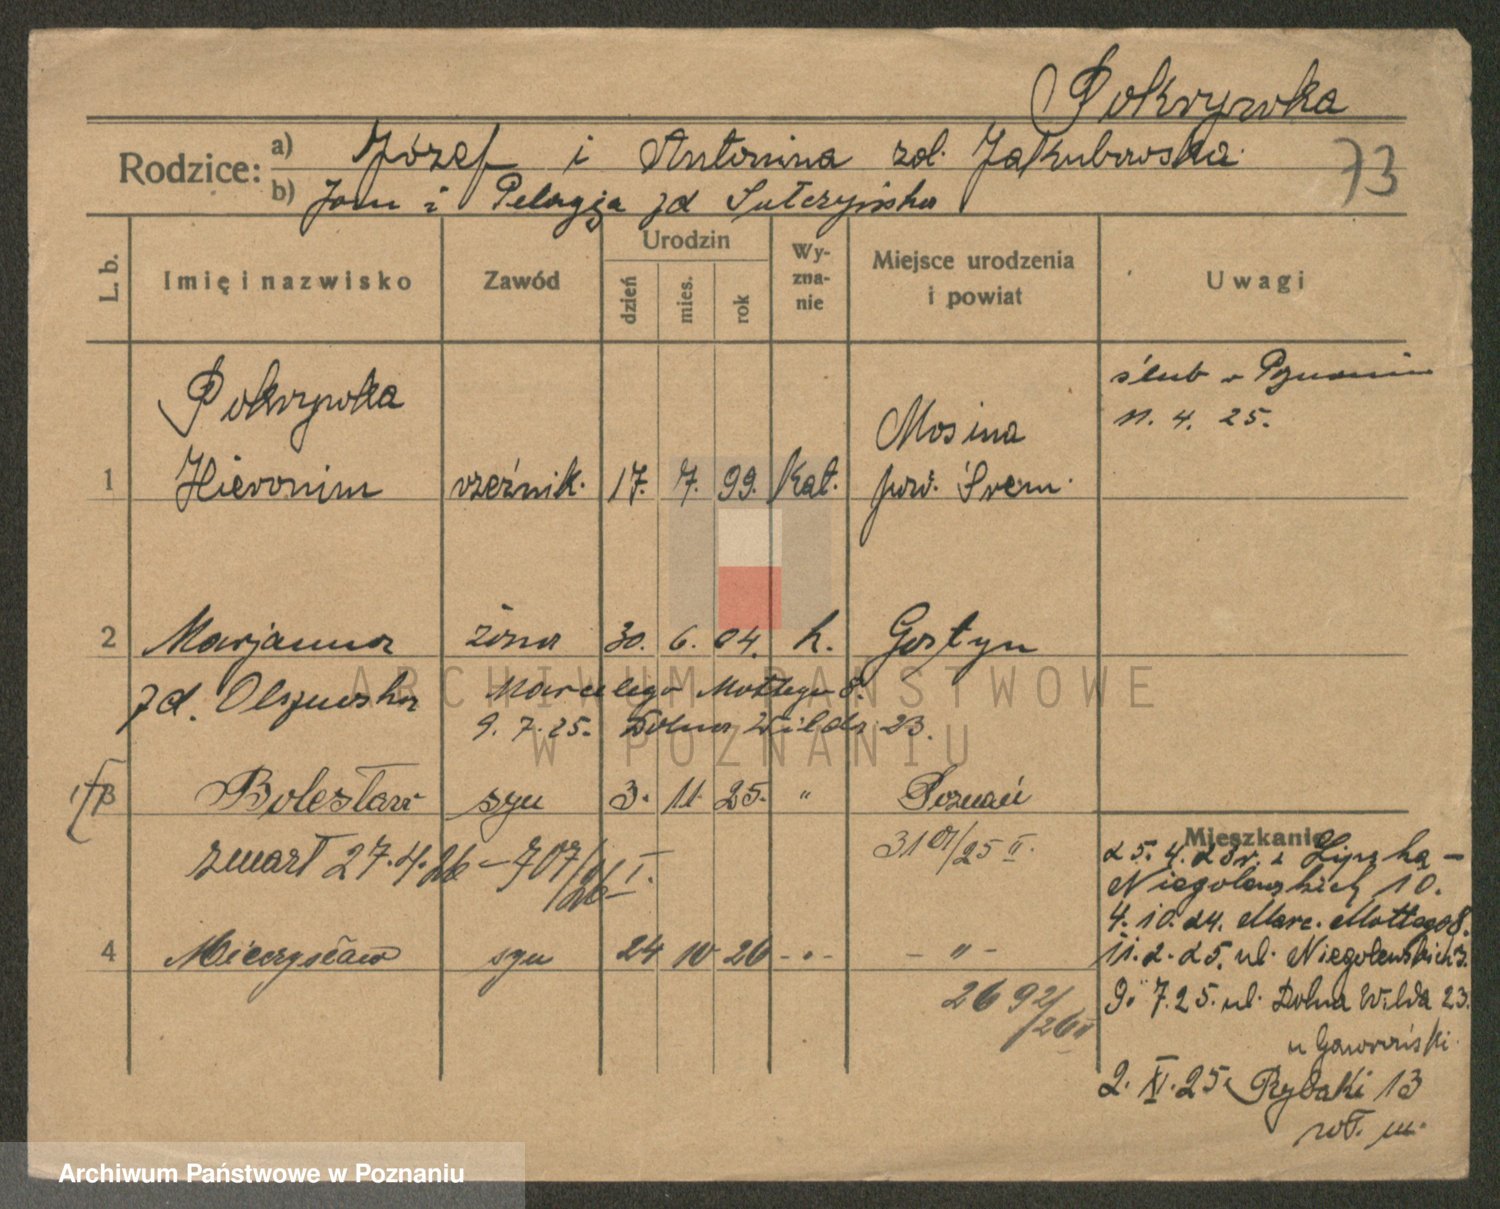 Pokrywka
73
Rodzice: a) Józef i Antonina zd. Jakubowska
b) Jan i Pelagja zd Sulczyńska
L. b.
Imię i nazwisko
Zawód
Urodzin
dzień
mies.
rok
Wy-
zna-
nie
Miejsce urodzenia
i powiat
Uwagi
Pokrywka
ślub w Poznaniu
11. 4. 25.
Mosina
1 Hieronim rzeźnik. 17. 7. 99. Kat. pow. Śrem.
2 Marjanna żona 30. 6. 04. k. Gostyn
zd. Olszewska Marcelego Mottego 8.
9. 7. 25. Dolna Wilda 23.
3 Bolesław syn 3. 11. 25. " Poznań
zmarł 27.4.26 – 707/26 I.
3101/25 II.
4 Mieczysław syn 24 10 26 - " - - " -
2692/26 II
Mieszkanie
25. 4. 23 r. z
Niegolewskich 10.
4. 10. 24. Marc. Mottego 8.
11. 2. 25. ul. Niegolewskich
9. 7. 25. ul. Dolna Wilda 23.
u Gaworński
2. XI. 25. Rybaki 13
wł. m.
ARCHIWUM PAŃSTWOWE
W POZNANIU
Archiwum Państwowe w Poznaniu